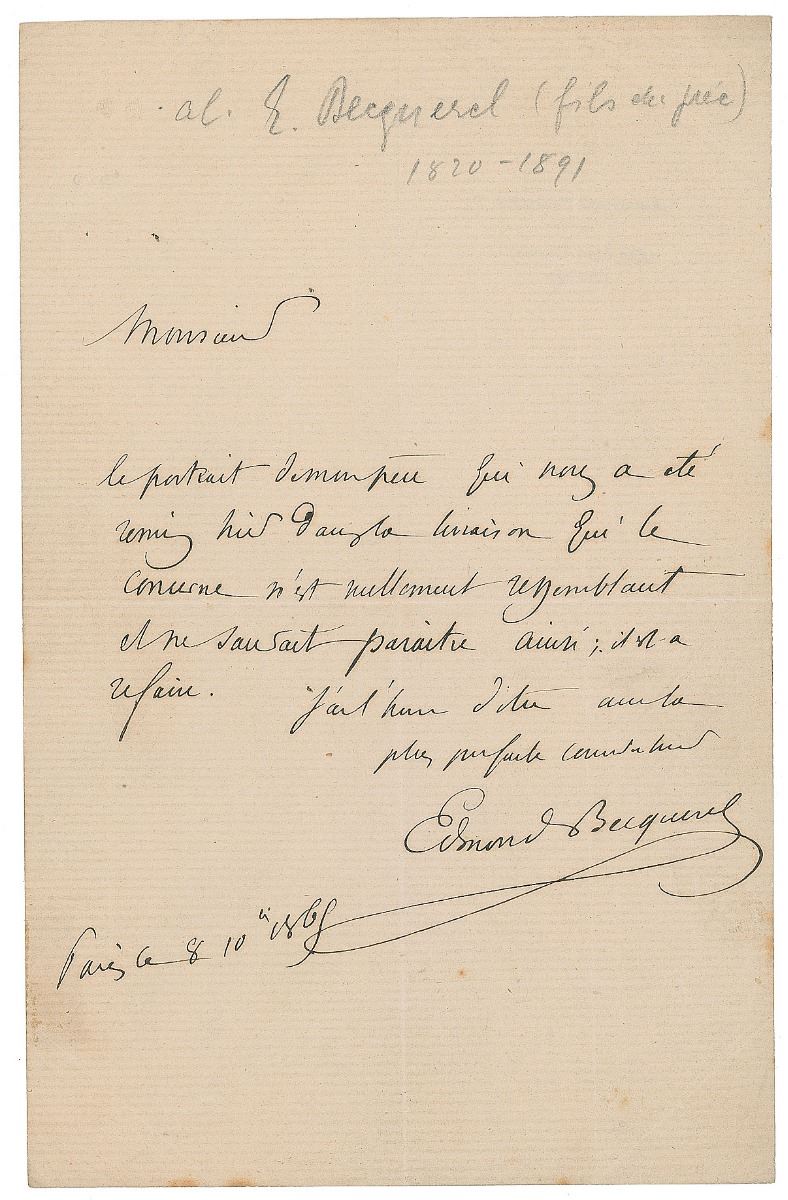 al. E. Becquerel (fils du préc)
1820-1891
Monsieur
le portrait de mon père qui nous a été
remis hier dans la livraison qui le
concerne n'est nullement ressemblant
et ne saurait paraitre ainsi; il est a
refaire. J'ai l'honneur d'être avec la
plus parfaite consideration
Edmond Becquerel
Paris le 8 10